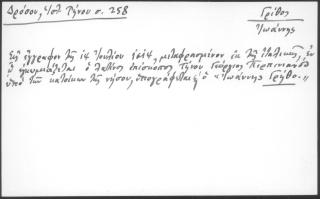 Δρόσου, Ἱστ. Τήνου σ. 258
Γρύθος
Ἰωάννης
Εἰς ἔγγραφον τῆς 14 Ἰουλίου 1614, μεταφρασμένον ἐκ τῆς Ἰταλικῆς, ἐν
ᾧ ἐγκωμιάζεται ὁ λατῖνος ἐπίσκοπος Τήνου Γεώργιος Περπινιάνο
ὑπὸ τῶν κατοίκων τῆς νήσου, ὑπογράφεται ὁ "Ἰωάννης Γρύθο."